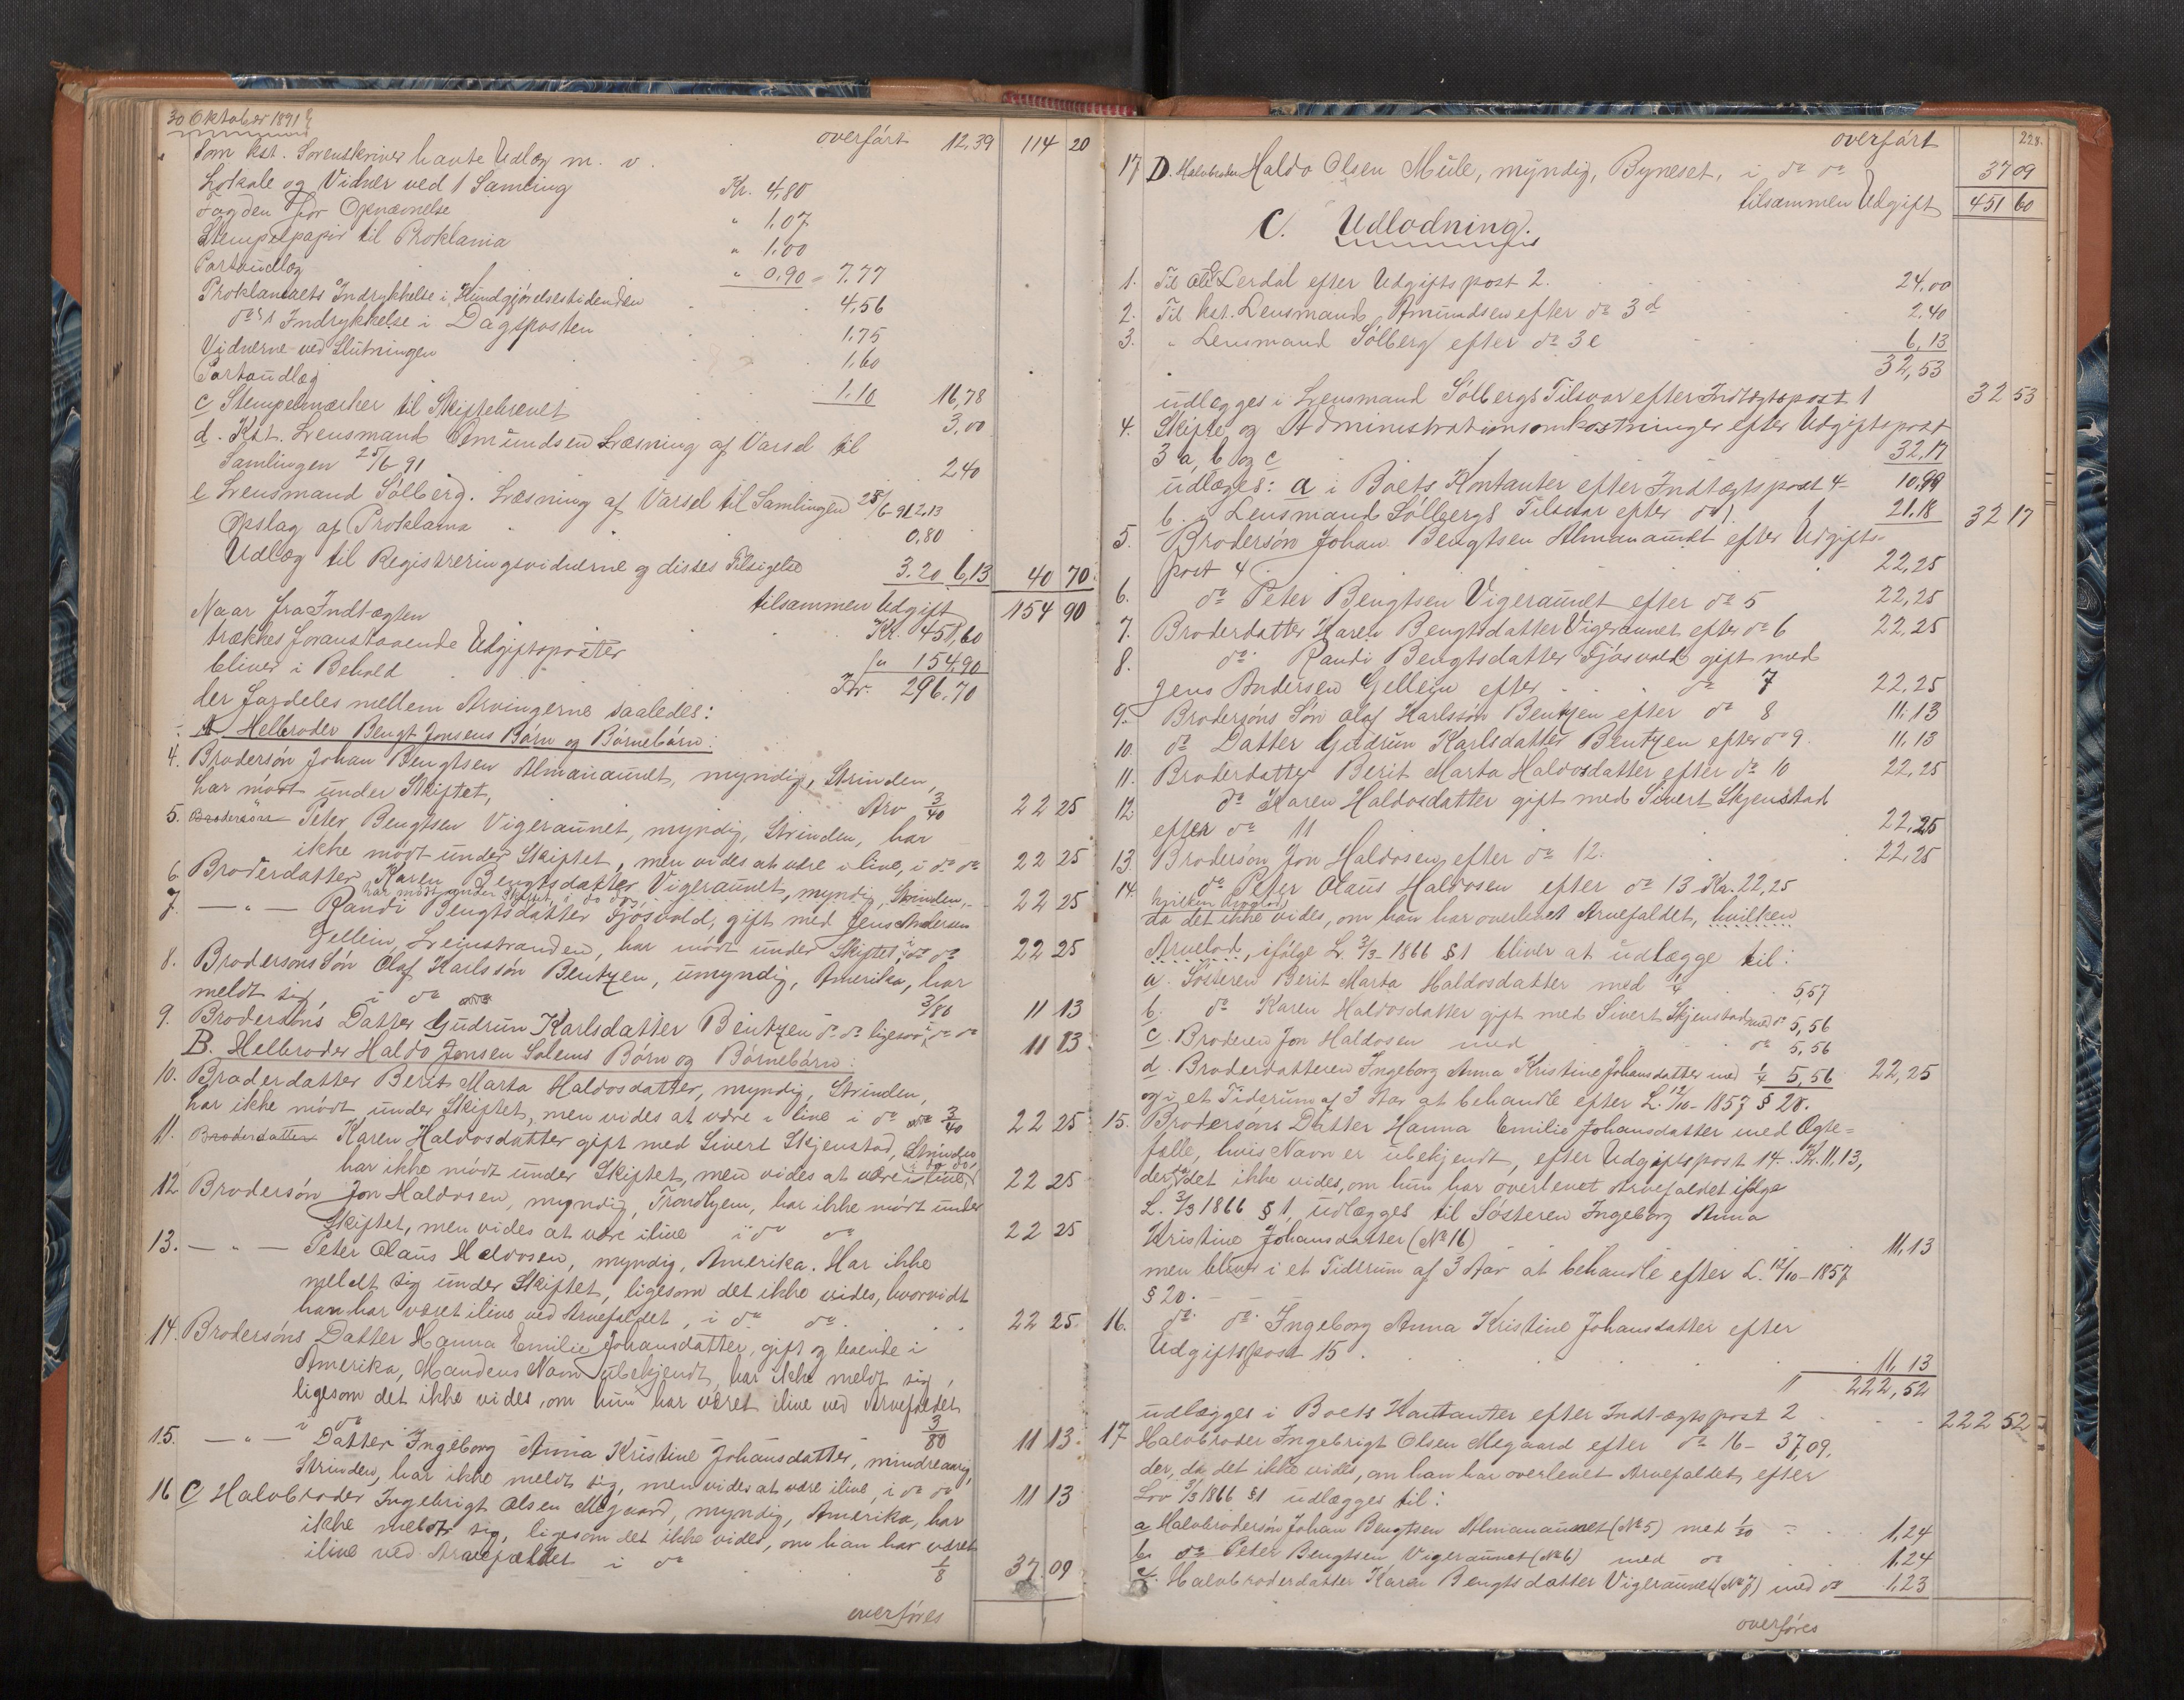 30 Oktober 1891
overført 12,39 114 20
Som kst. Sorenskriver havte Udlæg m. v.
Lokale og Vidner ved 1 Samling Kr. 4,80
Fogden for Opnævnelse " 1,07
Stempelpapir til Proklama " 1,00
Portoudlæg " 0,90 = 7,77
Proklamaets Indrykkelse i Kundgjørelsestidenden 4,56
do s 1 Indrykkelse i Dagsposten 1,75
Vidnerne ved Slutningen 1,60
Portoudlæg 1,10 16,78
c Stempelmærker til Skiftebrevet 3,00
d. Kst. Lensmand Amundsen Læsning af Varsel til
Samlingen 25/6 91 2,40
e Lensmand Sølberg. Læsning af Varsel til Samlingen 25/6-91 2,13
Opslag af Proklama " 0,80
Udlæg til Registreringsvidnerne og disses Tilsigelse 3.20 6,13 40 70
tilsammen Udgift 154 90
Naar fra Indtægten Kr. 451,60
trækkes foranstaaende Udgiftsposter " 154,90
bliver i Behold Kr. 296,70
der fordeles mellem Arvingerne saaledes:
A Helbroder Bengt Jonsens Børn og Børnebørn:
4. Brodersøn Johan Bengtsen Almanaunet, myndig, Strinden,
har mødt under Skiftet, Arv 3/40 22 25
5. Brodersøn Peter Bengtsen Vigeraunet, myndig, Strinden, har
ikke mødt under Skiftet, men vides at være i live, i do do 22 25
6 Broderdatter Karen Bengtsdatter Vigeraunet, myndig, Strinden,
har mødt under Skiftet, i do do 22 25
7. — " — Randi Bengtsdatter Fjøsvold, gift med Jens Andersen
Gellein, Leinstranden, har mødt under Skiftet, i do do 22 25
8. Brodersøns Søn Olaf Karlssøn Bentzen, umyndig, Amerika, har
meldt sig, i do 3/80 11 13
9. Brodersøns Datter Gudrun Karlsdatter Bentzen do do ligesaa i do do 11 13
B. Helbroder Haldo Jonsen Solems Børn og Børnebørn:
10. Broderdatter Berit Marta Haldosdatter, myndig, Strinden,
har ikke mødt under Skiftet, men vides at være i live i do 3/40 22 25
11. Broderdatter Karen Haldosdatter gift med Sivert Skjenstad, Strinden
har ikke mødt under Skiftet, men vides at være i live, i do do 22 25
12 Brodersøn Jon Haldosen, myndig, Trondhjem, har ikke mødt under
Skiftet, men vides at være ilive i do do 22 25
13. — " — Peter Olaus Haldosen, myndig, Amerika. Har ikke
meldt sig under Skiftet, ligesom det ikke vides, hvorvidt
han har været ilive ved Arvefaldet, i do do 22 25
14. Brodersøns Datter Hanna Emilie Johansdatter, gift og boende i
Amerika, Mandens Navn ubekjendt, har ikke meldt sig,
ligesom det ikke vides, om hun har været ilive ved Arvefaldet
i do 3/80 11 13
15. — " — Datter Ingeborg Anna Kristine Johansdatter, mindreaarig,
Strinden, har ikke meldt sig, men vides at være ilive, i do do 11 13
16 C Halvbroder Ingebrigt Olsen Megaard, myndig, Amerika, har
ikke meldt sig, ligesom det ikke vides, om han har været
ilive ved Arvefaldet i do 1/8 37 09
overføres
228.
overført
17 D. Halvbroder Haldo Olsen Mule, myndig, Byneset, i do do 37 09
tilsammen Udgift 451 60
C. Udlodning.
1. Til Ole Lerdal efter Udgiftspost 2. 24,00
2. Til kst. Lensmand Amundsen efter do 3 d 2,40
3. " Lensmand Sølberg efter do 3 e 6,13
32,53
udlægges i Lensmand Sølbergs Tilsvar efter Indtægtspost 1 32 53
4. Skifte og Administrationsomkostninger efter Udgiftspost
3 a, b og c 32,17
udlæges: a i Boets Kontanter efter Indtægtspost 4- 10,99
b. i Lensmand Sølbergs Tilsvar efter do 1 21,18 32 17
5. Brodersøn Johan Bengtsen Almanaunet efter Udgifts-
post 4 22,25
6. do Peter Bengtsen Vigeraunet efter do 5 22,25
7. Broderdatter Karen Bengtsdatter Vigeraunet efter do 6 22,25
8. do Randi Bengtsdatter Fjøsvold gift med
Jens Andersen Gellein efter do 7 22,25
9. Brodersøns Søn Olaf Karlssøn Bentzen efter do 8 11,13
10. do Datter Gudrun Karlsdatter Bentzen efter do 9. 11,13
11. Broderdatter Berit Marta Haldosdatter efter do 10 22,25
12 do Karen Haldosdatter gift med Sivert Skjenstad
efter do 11 22,25
13. Brodersøn Jon Haldosen efter do 12. 22,25
14. do Peter Olaus Haldosen efter do 13 Kr. 22,25
hvilken Arvelod,
da det ikke vides, om han har overlevet Arvefaldet, hvilken
Arvelod, ifølge L. 3/3-1866 § 1 bliver at udlægge til:
a. Søsteren Berit Marta Haldosdatter med 1/4 5,57
b. do Karen Haldosdatter gift med Sivert Skjenstad med do 5,56
c. Broderen Jon Haldosen med do 5,56
d. Broderdatteren Ingeborg Anna Kristine Johansdatter med 1/4 5,56 22,25
og i et Tidsrum af 3 Aar at behandle efter L. 12/10-1857 § 20.
15. Brodersøns Datter Hanna Emilie Johansdatter med Ægte-
fælle, hvis Navn er ubekjendt, efter Udgiftspost 14. Kr. 11,13,
der, da det ikke vides, om hun har overlevet Arvefaldet ifølge
L. 3/3 1866 § 1, udlægges til Søsteren Ingeborg Anna
Kristine Johansdatter (No 16) 11,13
men bliver i et Tidsrum af 3 Aar at behandle efter L. 12/10-1857
§ 20.
16. do do Ingeborg Anna Kristine Johansdatter efter
Udgiftspost 15. 11,13
222,52
udlægges i Boets Kontanter efter Indtægtspost 2 222 52
17 Halvbroder Ingebrigt Olsen Megaard efter do 16 - 37,09,
der, da det ikke vides, om han har overlevet Arvefaldet, efter
Lov 3/3 1866 § 1 udlægges til:
a Halvbrodersøn Johan Bengtsen Almanaunet (No 5) med 1/30 1,24
b. do Peter Bengtsen Vigeraunet (No 6) med do 1,24
c. Halvbroderdatter Karen Bengtsdatter Vigeraunet (No 7) med do 1,23
overføres